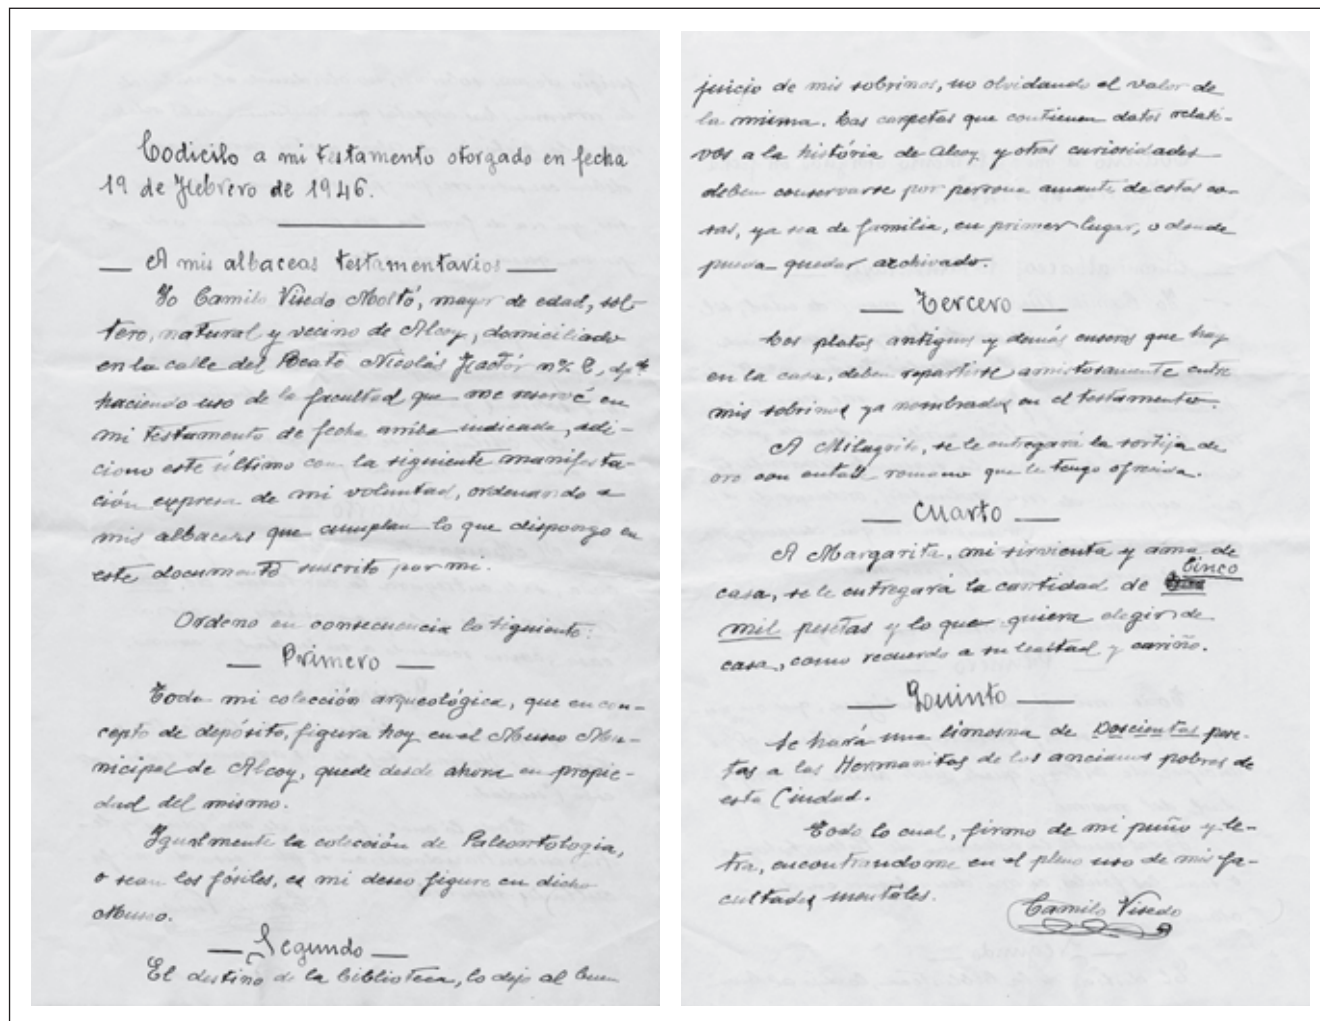 Codicilo a mi testamento otorgado en fecha
19 de Febrero de 1946.
— A mis albaceas testamentarios —
Yo Camilo Visedo Moltó, mayor de edad, sol-
tero, natural y vecino de Alcoy, domiciliado
en la calle del Beato Nicolás Factór nº
haciendo uso de la facultad que me reservé en
mi testamento de fecha arriba indicada, adi-
ciono este último con la siguiente manifesta-
ción expresa de mi voluntad, ordenando a
mis albaceas que cumplan lo que dispongo en
este documento suscrito por mi.
Ordeno en consecuencia lo siguiente:
— Primero —
Toda mi colección arqueológica, que en con-
cepto de depósito, figura hoy en el Museo Mu-
nicipal de Alcoy, quede desde ahora en propie-
dad del mismo.
Igualmente la colección de Paleontologia,
o sean los fósiles, es mi deseo figure en dicho
Museo.
— Segundo —
El destino de la biblioteca, lo dejo al buen
juicio de mis sobrinos, no olvidando el valor de
la misma. Las carpetas que contienen datos relati-
vos a la história de Alcoy y otras curiosidades
deben conservarse por persona amante de estas co-
sas, ya sea de familia, en primer lugar, o donde
pueda quedar archivado.
— Tercero —
Los platos antiguos y demás enseres que hay
en la casa, deben repartirse amistosamente entre
mis sobrinos ya nombrados en el testamento.
A Milagrito, se le entregará la sortija de
oro con entalle romano que le tengo ofrecida.
— Cuarto —
A Margarita, mi sirvienta y ama de
casa, se le entregará la cantidad de Cinco
mil pesetas y lo que quiera elegir de
casa, como recuerdo a su lealtad y cariño.
— Quinto —
Se hará una limosna de Doscientas pese-
tas a las Hermanitas de los ancianos pobres de
esta Ciudad.
Todo lo cual, firmo de mi puño y le-
tra, encontrandome en el pleno uso de mis fa-
cultades mentales.
Camilo Visedo